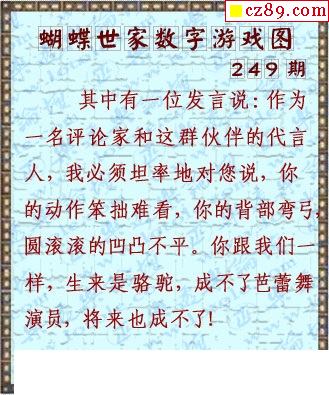 cz89.com
蝴蝶世家数字游戏图
249期
其中有一位发言说:作为
一名评论家和这群伙伴的代言
人，我必须坦率地对您说，你
的动作笨拙难看，你的背部弯弓，
圆滚滚的凹凸不平。你跟我们一
样，生来是骆驼，成不了芭蕾舞
演员，将来也成不了!